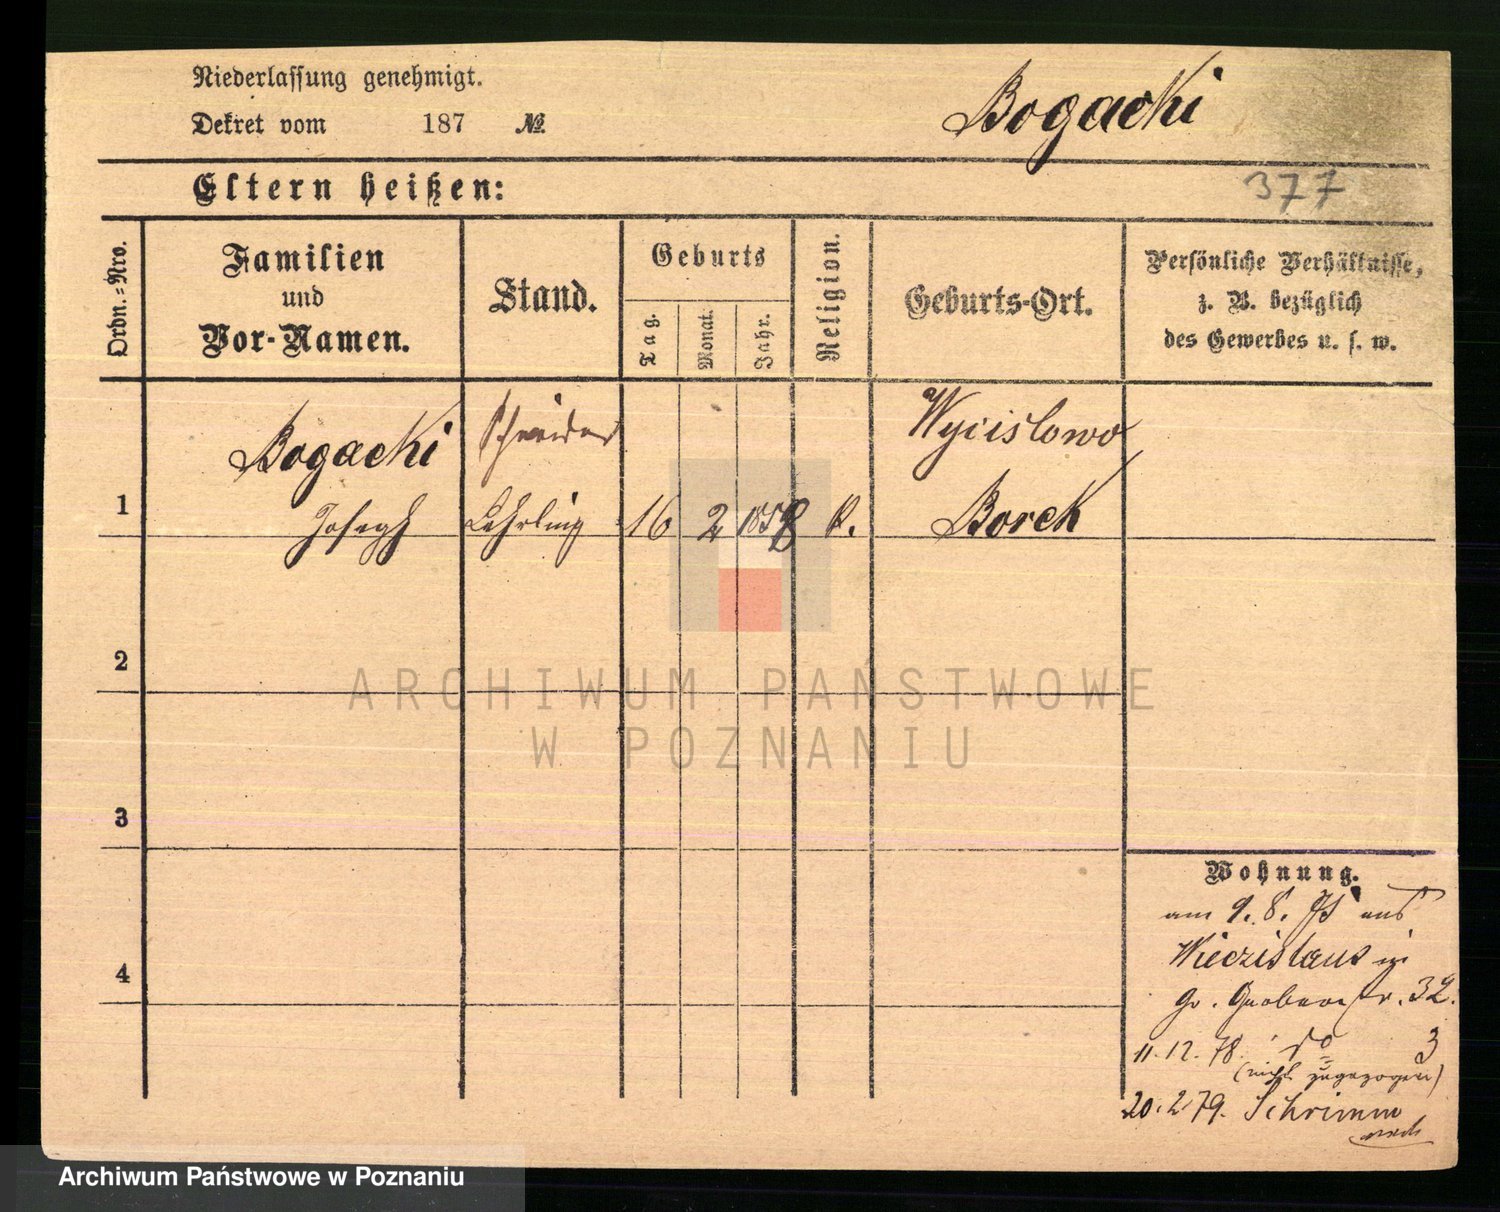 Niederlassung genehmigt.
Bogacki
Dekret vom 187 №
Eltern heißen:
377
Ordn.-Nro.
Familien
und
Vor-Namen.
Stand.
Geburts
Tag.
Monat.
Jahr.
Religion.
Geburts-Ort.
Persönliche Verhältnisse,
z. B. bezüglich
des Gewerbes u. s. w.
Bogacki Schneider Wycislowo
1 Joseph Lehrling 16 2 1858 k. Borek
2
3
4
Wohnung.
am 9. 8. 78 aus
in
Gr. Gerberstr. 32.
11.12.78. do 3
(nicht zugezogen)
20.2.79. Schrimm
ARCHIWUM PAŃSTWOWE
W POZNANIU
Archiwum Państwowe w Poznaniu